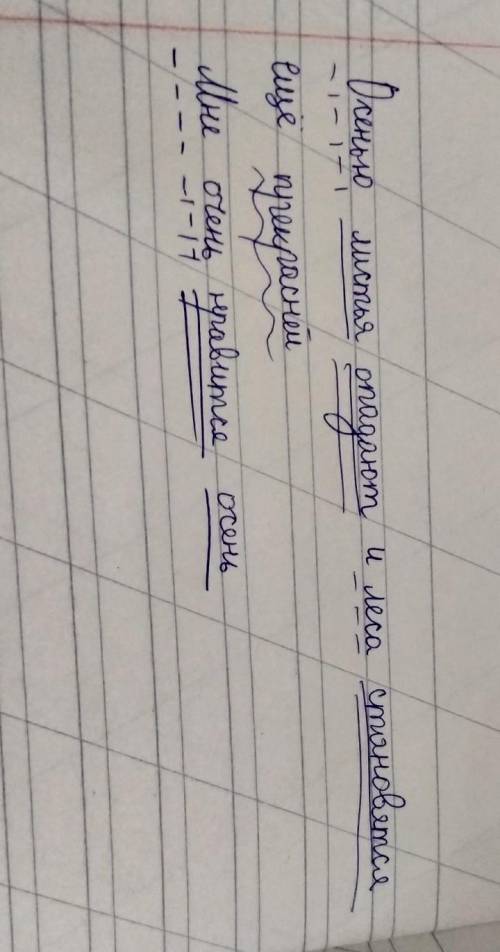 Осенью листья опадают и леса становятся
ещё прекрасней
Мне очень нравится осень